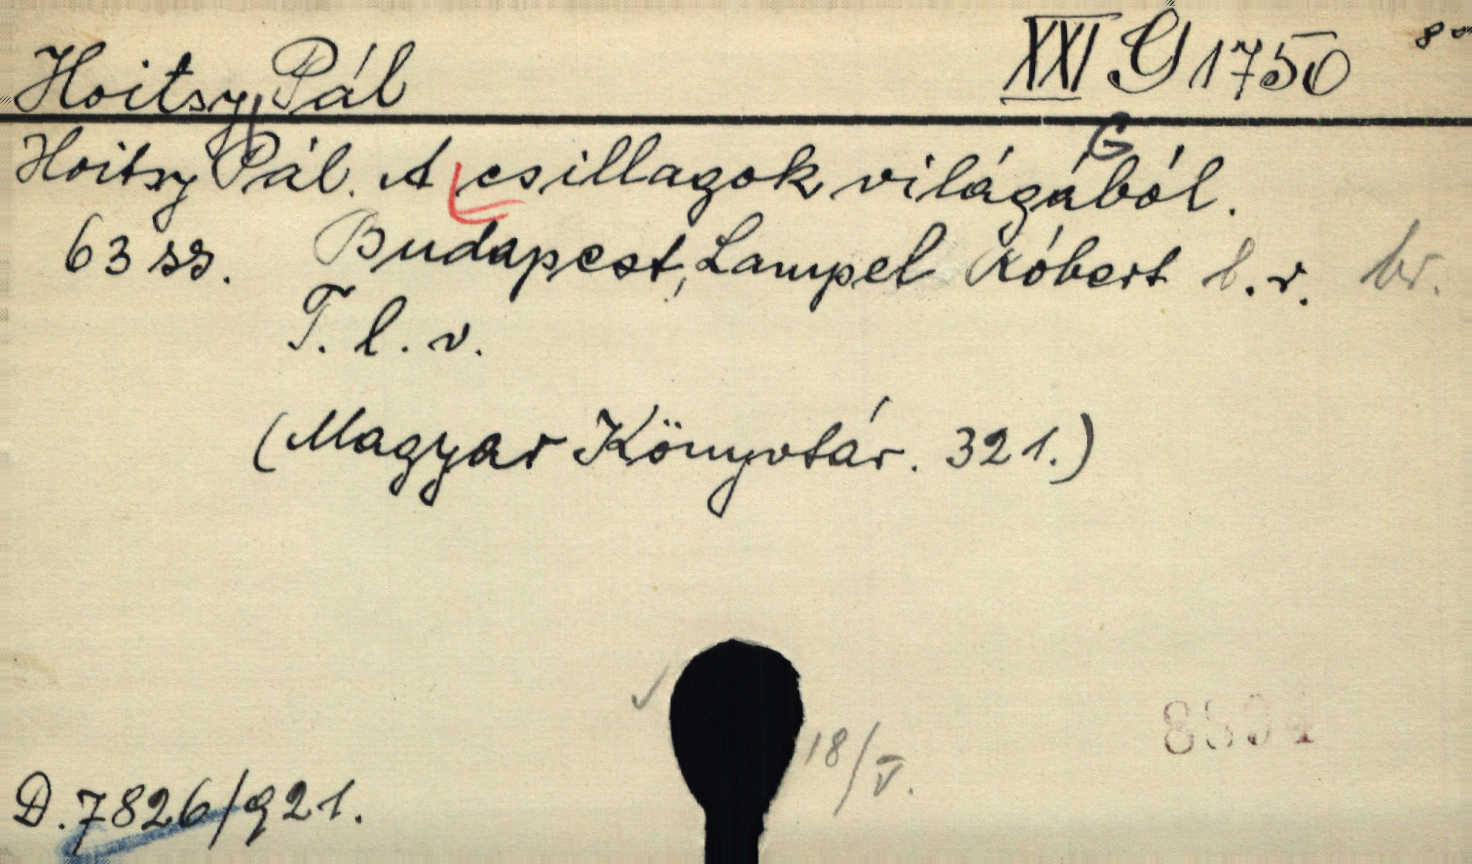 Hoitsy Pál XXI G 1750 8°
G
Hoitsy Pál. A csillagok világából.
63 ss. Budapest, Lampel Róbert é. n. br.
T. l. v.
(Magyar Könyvtár. 321.)
18/V.
D. 7826/921.